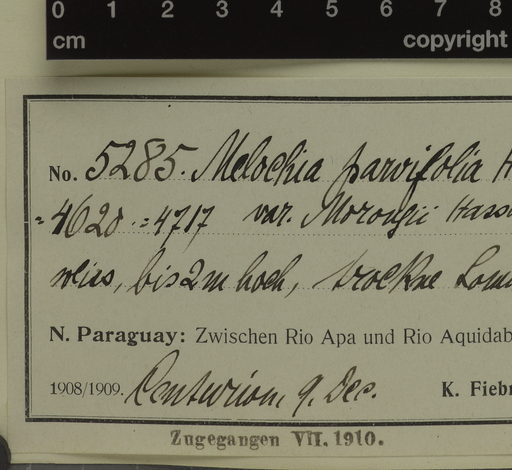 0 1 2 3 4 5 6 7 8
cm copyright
No. 5285. Melochia parvifolia H
=4620 =4717 var. Morongii Hass
weiss, bis 2 m hoch, trockne
N. Paraguay: Zwischen Rio Apa und Rio Aquidab
1908/1909. Centurion, 9. Dec. K. Fiebr
Zugegangen VII. 1910.